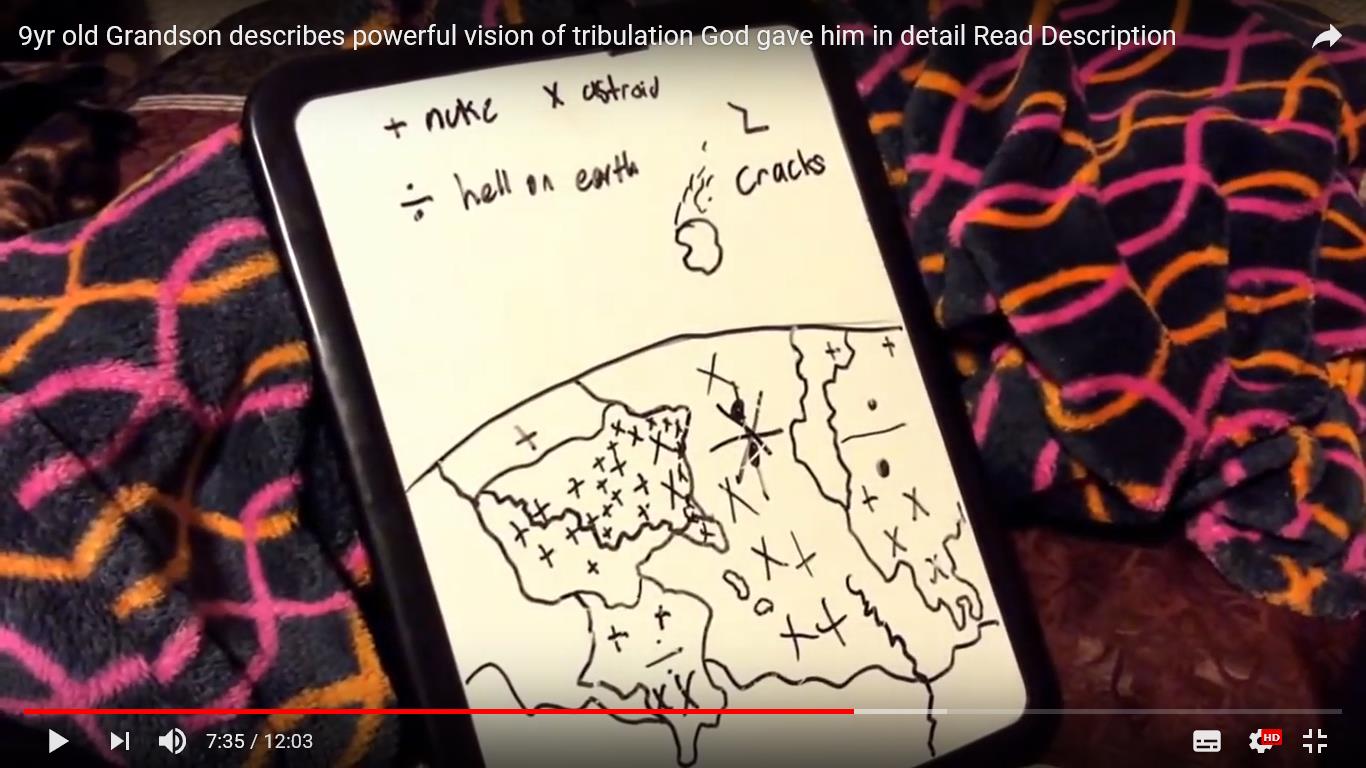 9yr old Grandson describes powerful vision of tribulation God gave him in detail Read Description
+ nuke X astroid
÷ hell on earth
Cracks
7:35 / 12:03
HD